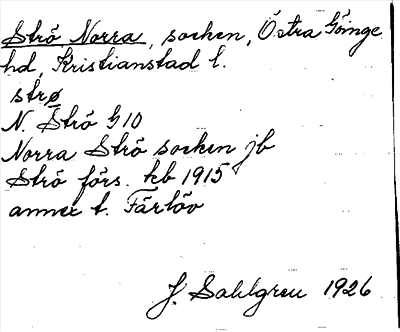 Strö Norra, socken, Östra Göinge
hd, Kristianstad l.
strø
N. Strö G10
Norra Strö socken jb
Strö förs. kb 1915
annex t. Färlöv
J. Sahlgren 1926